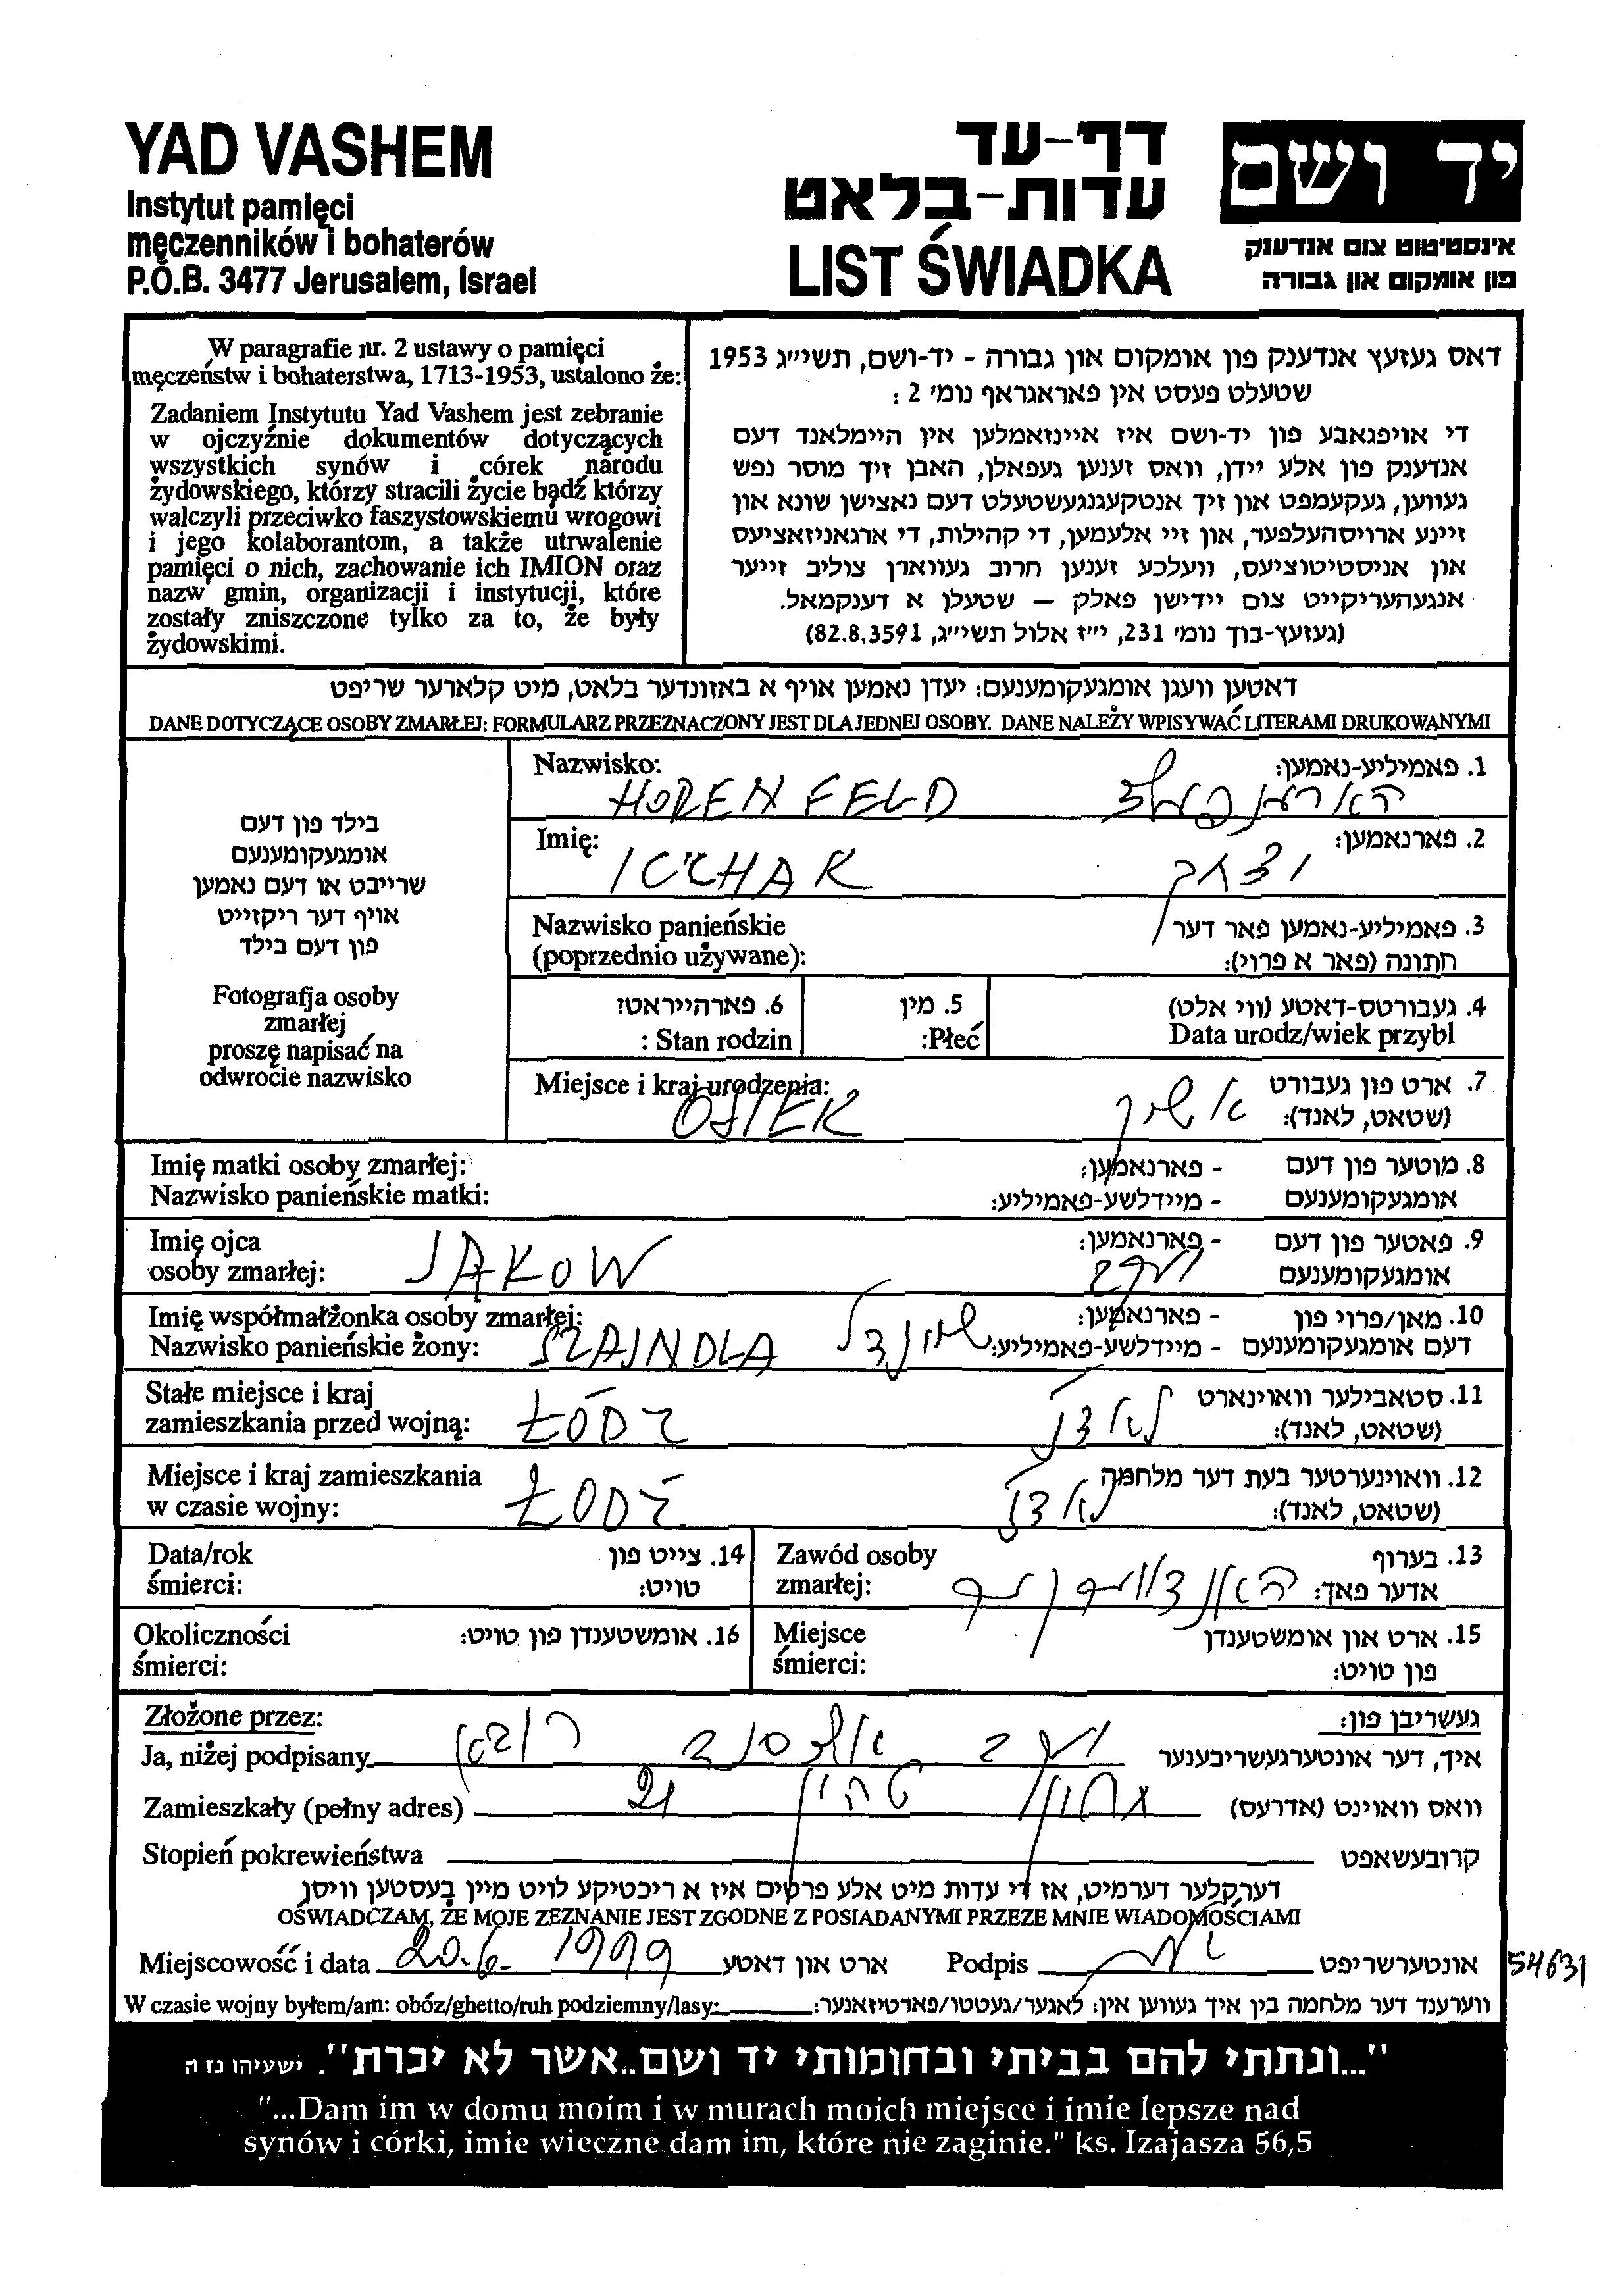 YAD VASHEM
Instytut pamięci
męczenników i bohaterów
P.O.B. 3477 Jerusalem, Israel
דף-עד
עדות-בלאט
LIST ŚWIADKA
יד ושם
אינסטיטוט צום אנדענק
פון אומקום און גבורה
W paragrafie nr. 2 ustawy o pamięci
męczeństw i bohaterstwa, 1713-1953, ustalono że:
Zadaniem Instytutu Yad Vashem jest zebranie
w ojczyźnie dokumentów dotyczących
wszystkich synów i córek narodu
żydowskiego, którzy stracili życie bądź którzy
walczyli przeciwko faszystowskiemu wrogowi
i jego kolaborantom, a także utrwalenie
pamięci o nich, zachowanie ich IMION oraz
nazw gmin, organizacji i instytucji, które
zostały zniszczone tylko za to, że były
żydowskimi.
דאס געזעץ אנדענק פון אומקום און גבורה - יד-ושם, תשי״ג 1953
שטעלט פעסט אין פאראגראף נומ׳ 2 :
די אויפגאבע פון יד-ושם איז איינזאמלען אין היימלאנד דעם
אנדענק פון אלע יידן, וואס זענען געפאלן, האבן זיך מוסר נפש
געווען, געקעמפט און זיך אנטקעגנגעשטעלט דעם נאצישן שונא און
זיינע ארויסהעלפער, און זיי אלעמען, די קהילות, די ארגאניזאציעס
און אניסטיטוציעס, וועלכע זענען חרוב געווארן צוליב זייער
אנגעהעריקייט צום יידישן פאלק — שטעלן א דענקמאל.
(געזעץ-בוך נומ׳ 231, י״ז אלול תשי״ג, 82.8.3591)
דאטען וועגן אומגעקומענעם: יעדן נאמען אויף א באזונדער בלאט, מיט קלארער שריפט
DANE DOTYCZĄCE OSOBY ZMARŁEJ: FORMULARZ PRZEZNACZONY JEST DLA JEDNEJ OSOBY. DANE NALEŻY WPISYWAĆ LITERAMI DRUKOWANYMI
בילד פון דעם
אומגעקומענעם
שרייבט או דעם נאמען
אויף דער ריקזייט
פון דעם בילד
Fotografja osoby
zmarłej
proszę napisać na
odwrocie nazwisko
Nazwisko: HORENFELD הארענפעלד 1. פאמיליע-נאמען:
Imię: ICCHAK יצחק 2. פארנאמען:
Nazwisko panieńskie 3. פאמיליע-נאמען פאר דער
(poprzednio używane): חתונה (פאר א פרוי):
6. פארהייראט? 5. מין 4. געבורטס-דאטע (ווי אלט)
Stan rodzin : Płeć: Data urodz/wiek przybl
Miejsce i kraj urodzenia: OSIEK אשיק 7. ארט פון געבורט
(שטאט, לאנד):
Imię matki osoby zmarłej: - פארנאמען: 8. מוטער פון דעם
Nazwisko panieńskie matki: - מיידלשע-פאמיליע: אומגעקומענעם
Imię ojca - פארנאמען: 9. פאטער פון דעם
osoby zmarłej: JAKOW יעקב אומגעקומענעם
Imię współmałżonka osoby zmarłej: - פארנאמען: 10. מאן/פרוי פון
Nazwisko panieńskie żony: SZAJNDLA שיינדל - מיידלשע-פאמיליע: דעם אומגעקומענעם
Stałe miejsce i kraj 11. סטאבילער וואוינארט
zamieszkania przed wojną: ŁÓDŹ לאדז (שטאט, לאנד):
Miejsce i kraj zamieszkania 12. וואוינערטער בעת דער מלחמה
w czasie wojny: ŁODŹ לאדז (שטאט, לאנד):
Data/rok 14. צייט פון Zawód osoby 13. בערוף
śmierci: טויט: zmarłej: אדער פאך:
Okoliczności 16. אומשטענדן פון טויט: Miejsce 15. ארט און אומשטענדן
śmierci: śmierci: פון טויט:
Złożone przez: געשריבן פון:
Ja, niżej podpisany איך, דער אונטערגעשריבענער
Zamieszkały (pełny adres) 21 וואס וואוינט (אדרעס)
Stopień pokrewieństwa קרובעשאפט
דערקלער דערמיט, אז די עדות מיט אלע פרטים איז א ריכטיקע לויט מיין בעסטען וויסן
OŚWIADCZAM, ŻE MOJE ZEZNANIE JEST ZGODNE Z POSIADANYMI PRZEZE MNIE WIADOMOŚCIAMI
Miejscowość i data 20.6. 1999 ארט און דאטע Podpis אונטערשריפט 54631
W czasie wojny byłem/am: obóz/ghetto/ruh podziemny/lasy: ווערענד דער מלחמה בין איך געווען אין: לאגער/געטטו/פארטיזאנער:
"...ונתתי להם בביתי ובחומותי יד ושם..אשר לא יכרת". ישעיהו נז ה
"...Dam im w domu moim i w murach moich miejsce i imie lepsze nad
synów i córki, imie wieczne dam im, które nie zaginie." ks. Izajasza 56,5